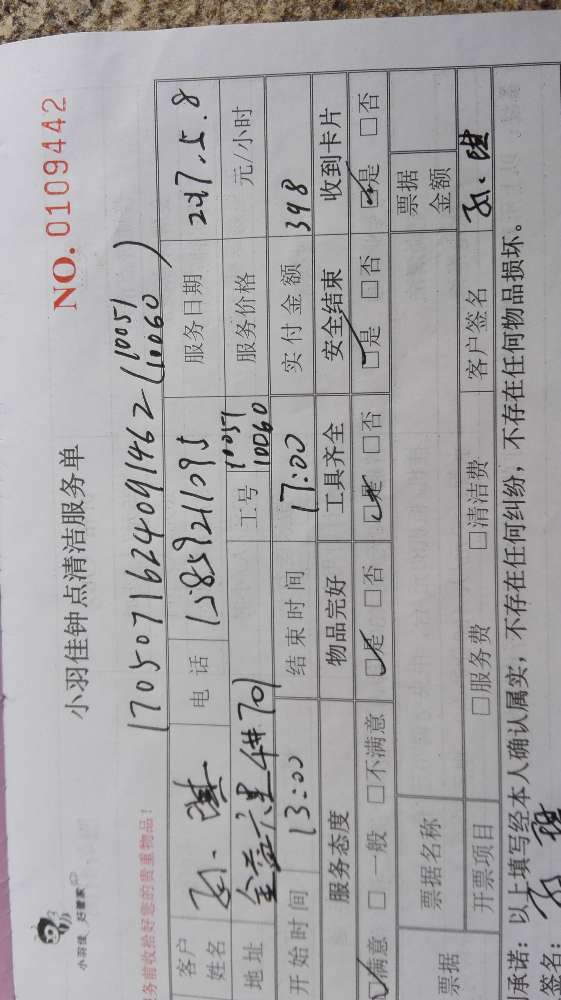 小羽佳 好管家
小羽佳钟点清洁服务单
NO. 0109442
务前收拾好您的贵重物品!
1705071624091462 (10051 10060)
客户姓名 孙 琪 电话 15859211095 服务日期 2017.5.8
地址 金益六里4#701 工号 10051 10060 服务价格 元/小时
开始时间 13:00 结束时间 17:00 实付金额 398
服务态度 物品完好 工具齐全 安全结束 收到卡片
满意 □ 一般 □不满意 □是 □否 □是 □否 □是 □否 □是 □否
票据 票据名称 票据金额
开票项目 □服务费 □清洁费 客户签名 孙琪
承诺: 以上填写经本人确认属实, 不存在任何纠纷, 不存在任何物品损坏。
签名: